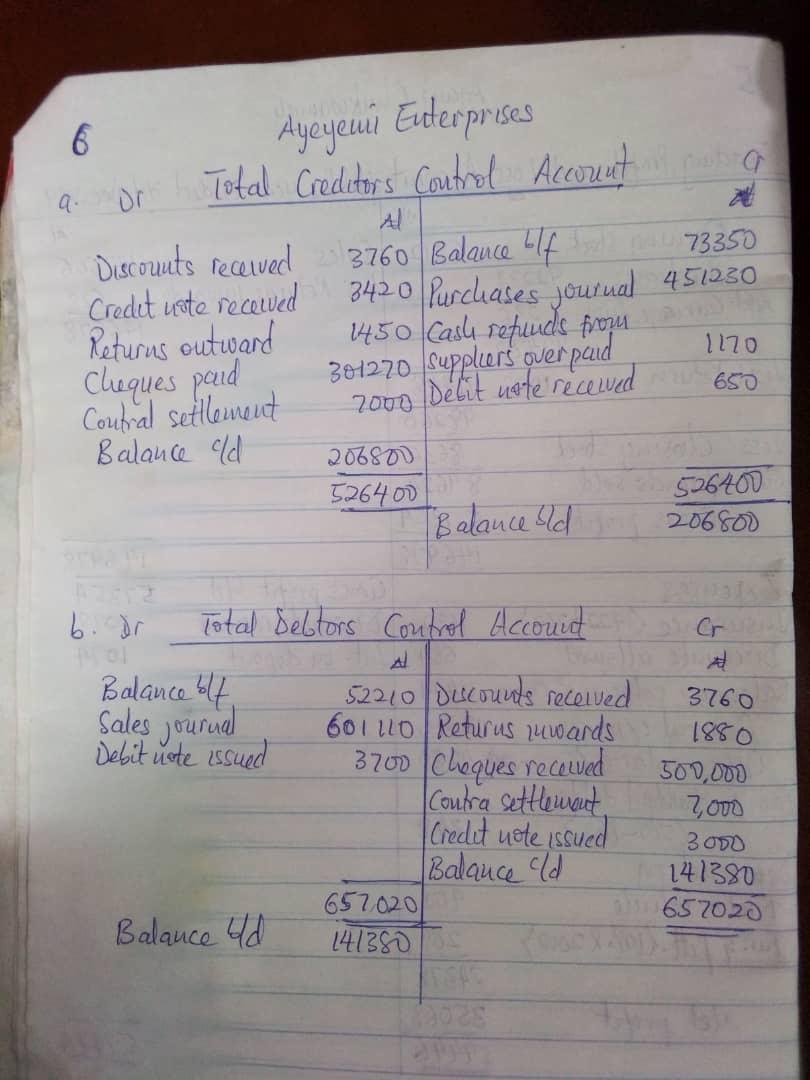 6 Ayeyemi Enterprises
a. Dr Total Creditors Control Account Cr
₦ ₦
Discounts received 3760 Balance b/f 73350
Credit note received 3420 Purchases journal 451230
Returns outward 1450 Cash refunds from
Cheques paid 301270 suppliers overpaid 1170
Contral settlement 7000 Debit note received 650
Balance c/d 206800
526400 526400
Balance b/d 206800
b. Dr Total Debtors Control Account Cr
₦ ₦
Balance b/f 52210 Discounts received 3760
Sales journal 601110 Returns inwards 1880
Debit note issued 3700 Cheques received 500,000
Contra settlement 7,000
Credit note issued 3000
Balance c/d 141380
657020 657020
Balance b/d 141380